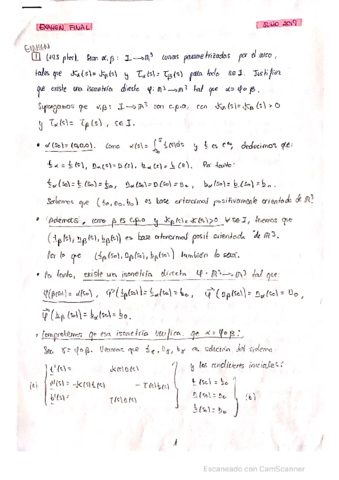 EXAMEN FINAL JUNIO 2019
EXAMEN
1 (2.5 ptos). Sean α, β: I → ℝ³ curvas parametrizadas por el arco,
tales que Kα(s) = Kβ(s) y τα(s) = τβ(s) para todo s ∈ I. Justifica
que existe una isometría directa φ: ℝ³ → ℝ³ tal que α = φ∘β.
Supongamos que α, β: I → ℝ³ son c.p.a, con Kα(s) = Kβ(s) > 0
y τα(s) = τβ(s), s ∈ I.
• α(s₀) = (0,0,0). Como α(s) = ∫ t(u)du y t es C∞, deducimos que:
tα = t(s), nα(s) = n(s), bα(s) = b(s). Por tanto:
tα(s₀) = t(s₀) = t₀, nα(s₀) = n(s₀) = n₀, bα(s₀) = b(s₀) = b₀.
Sabemos que (t₀, n₀, b₀) es base ortonormal positivamente orientada de ℝ³.
• Además, como β es c.p.a y Kβ(s) = K(s) > 0 ∀s ∈ I, tenemos que
(tβ(s), nβ(s), bβ(s)) es base ortonormal posit. orientada de ℝ³.
Por lo que (tβ(s₀), nβ(s₀), bβ(s₀)) también lo será.
• Por tanto, existe una isometría directa φ: ℝ³ → ℝ³ tal que:
φ(β(s₀)) = α(s₀), φ⃗(tβ(s₀)) = tα(s₀) = t₀, φ⃗(nβ(s₀)) = nα(s₀) = n₀,
φ⃗(bβ(s₀)) = bα(s₀) = b₀.
• Comprobemos que esa isometría verifica que α = φ∘β:
Sea γ = φ∘β. Veamos que tγ, nγ, bγ es solución del sistema:
(a) t'(s) = K(s)n(s)
n'(s) = -K(s)t(s) - τ(s)b(s)
b'(s) = τ(s)n(s)
y las condiciones iniciales:
t(s₀) = t₀
n(s₀) = n₀
b(s₀) = b₀
(b)
1
Escaneado con CamScanner